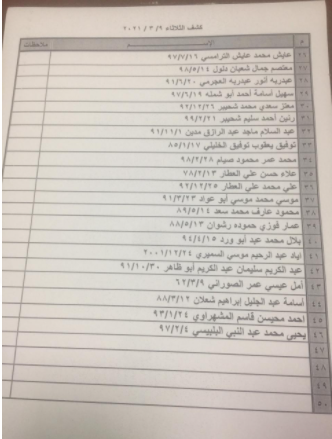 كشف الثلاثاء ٢٠٢١/٣/٩
م الاســـم ملاحظات
٢٦ عايش محمد عايش الترامسي ٩٧/٧/١٦
٢٧ معتصم جمال شعبان دلول ٩٨/٥/١٤
٢٨ عبدربه أنور عبدربه العجرمي ٩١/٦/٢٠
٢٩ سهيل أسامة أحمد أبو شملة ٩٧/٦/١٩
٣٠ معتز سعدي محمد شحيبر ٩٢/١٢/٢٦
٣١ رنين أحمد سليم شحيبر ٩٩/٢/٢١
٣٢ عبد السلام ماجد عبد الرازق مدين ٩١/١١/١
٣٣ توفيق يعقوب توفيق الخليلي ٨٥/١/١٧
٣٤ محمد عمر محمود صيام ٩٨/٢/٢٨
٣٥ علاء حسن علي العطار ٧٨/٢/١٣
٣٦ علي محمد علي العطار ٩٢/١٢/٢٥
٣٧ موسي محمد موسي أبو عواد ٩١/٣/٢٣
٣٨ محمود عارف محمد سعد ٨٩/٥/١٤
٣٩ عمار فوزي حموده رشوان ٨٨/٥/١٣
٤٠ بلال محمد عيد أبو ورد ٩٤/٤/١٥
٤١ اياد عبد الرحيم موسي السميري ٢٠٠١/١٢/٢٤
٤٢ عبد الكريم سليمان عبد الكريم أبو ظاهر ٩١/١٠/٣٠
٤٣ أمل عيسي عمر الصوراني ٦٢/٣/٩
٤٤ أسامة عبد الجليل إبراهيم شعلان ٨٨/٣/١٢
٤٥ احمد محيسن قاسم المشهراوي ٩٣/١/٢٤
٤٦ يحيى محمد عبد النبي البلبيسي ٩٧/٢/٤
٤٧
٤٨
٤٩
٥٠